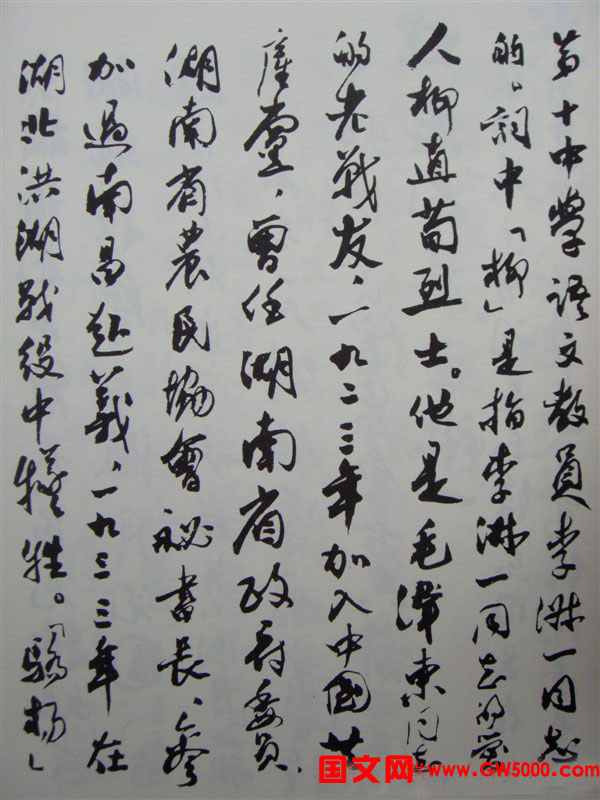 第十中學語文教員李淑一同志
的。詞中「柳」是指李淑一同志的愛
人柳直荀烈士。他是毛澤東同志
的老戰友、一九二三年加入中國共
産黨、曾任湖南省政府委員、
湖南省農民協會秘書長、參
加過南昌起義、一九三三年在
湖北洪湖戰役中犠牲。「驕楊」
国文网 www.GW5000.com